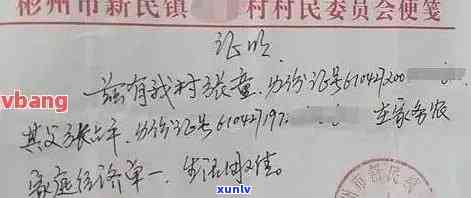 彬州市新民镇 村村民委员会便笺
证明
兹有我村张童,身份证号610427200
其父张占平,身份证号61042719? 在家务农
家庭经济单一、生活困难。
州市新民镇
vbang
xunlv